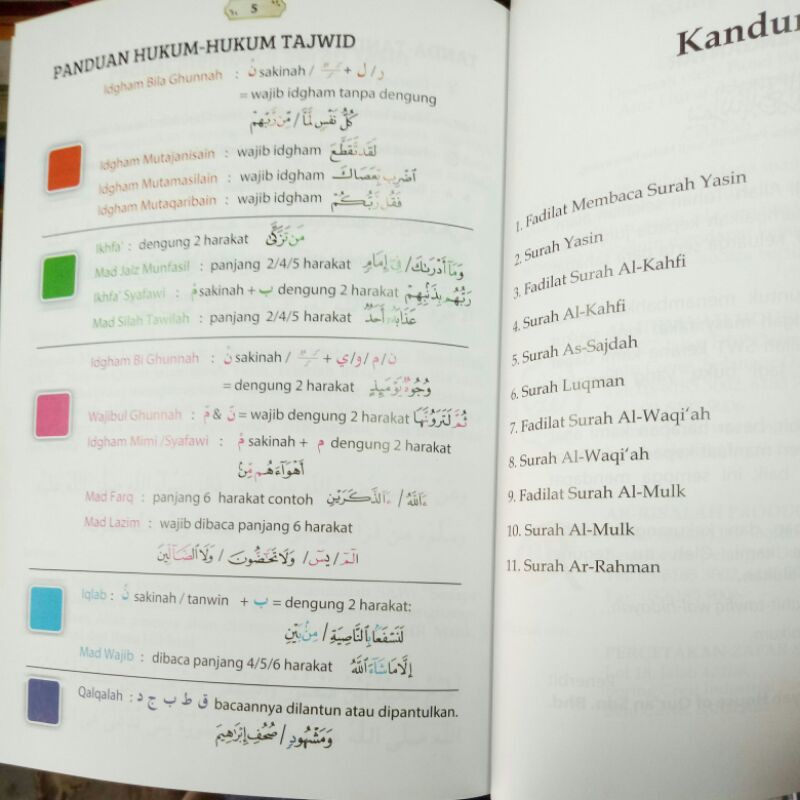 5
PANDUAN HUKUM-HUKUM TAJWID
Idgham Bila Ghunnah : نْ sakinah / ـًـٍـٌ + ل / ر
= wajib idgham tanpa dengung
كُلُّ نَفْسٍ لَّمَّا / مِّن رَّبِّهِمْ
Idgham Mutajanisain : wajib idgham لَقَد تَّقَطَّعَ
Idgham Mutamasilain : wajib idgham اَضْرِب بِّعَصَاكَ
Idgham Mutaqaribain : wajib idgham فَقُل رَّبُّكُمْ
Ikhfa' : dengung 2 harakat مَن تَزَكَّى
Mad Jaiz Munfasil : panjang 2/4/5 harakat وَمَآ أَدْرَىٰكَ / فِىٓ إِمَامٍ
Ikhfa' Syafawi : مْ sakinah + ب dengung 2 harakat رَبُّهُم بِذَنۢبِهِمْ
Mad Silah Tawilah : panjang 2/4/5 harakat عَذَابَهُۥٓ أَحَدٌ
Idgham Bi Ghunnah : نْ sakinah / ـًـٍـٌ + ن / م / و / ي
= dengung 2 harakat وُجُوهٌ يَوْمَئِذٍ
Wajibul Ghunnah : مّ & نّ = wajib dengung 2 harakat ثُمَّ لَتَرَوُنَّهَا
Idgham Mimi /Syafawi : مْ sakinah + م dengung 2 harakat
أَهْوَآءَهُم مِّنْ
Mad Farq : panjang 6 harakat contoh ءَآللَّهُ / ءَآلذَّكَرَيْنِ
Mad Lazim : wajib dibaca panjang 6 harakat
الٓمٓ / يسٓ / وَلَا تَحَٰٓضُّونَ / وَلَا ٱلضَّآلِّينَ
Iqlab : نْ sakinah / tanwin + ب = dengung 2 harakat:
لَنَسْفَعًۢا بِٱلنَّاصِيَةِ / مِنۢ بَيْنِ
Mad Wajib : dibaca panjang 4/5/6 harakat إِلَّا مَا شَآءَ ٱللَّهُ
Qalqalah : ق ط ب ج د bacaannya dilantun atau dipantulkan.
وَمَشْهُودٍ / صُحُفِ إِبْرَٰهِيمَ
1. Fadilat Membaca Surah Yasin
2. Surah Yasin
3. Fadilat Surah Al-Kahfi
4. Surah Al-Kahfi
5. Surah As-Sajdah
6. Surah Luqman
7. Fadilat Surah Al-Waqi'ah
8. Surah Al-Waqi'ah
9. Fadilat Surah Al-Mulk
10. Surah Al-Mulk
11. Surah Ar-Rahman